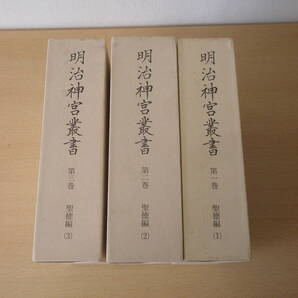 明治神宮叢書
第三巻
聖徳編
(3)
明治神宮叢書
第二巻
聖徳編
(2)
明治神宮叢書
第一巻
聖徳編
(1)